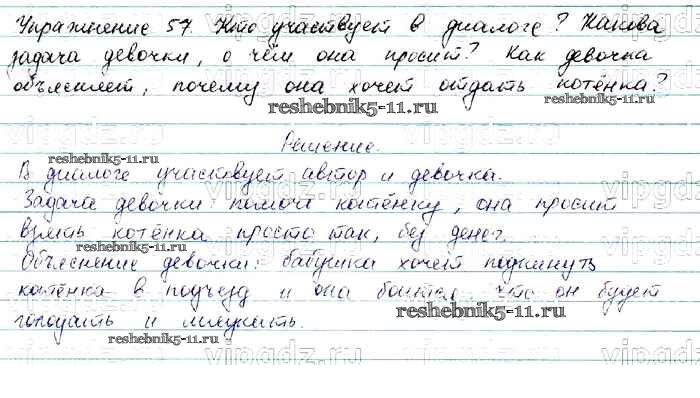 Упражнение 57. Кто участвует в диалоге? Какова
задача девочки, о чём она просит? Как девочка
объясняет, почему она хочет отдать котёнка?
reshebnik5-11.ru reshebnik5-11.ru
Решение.
reshebnik5-11.ru
В диалоге участвует автор и девочка.
vipgdz.ru vipgdz.ru
Задача девочки помочь котёнку, она просит
взять котёнка просто так, без денег.
reshebnik5-11.ru
Объяснение девочки: бабушка хочет подкинуть
котёнка в подъезд и она боится, что он будет
голодать и мяукать.
reshebnik5-11.ru
reshebnik5-11.ru
vipgdz.ru